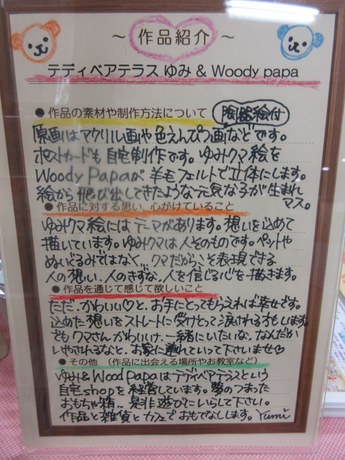 ～ 作品紹介 ～
テディベアテラス ゆみ & Woody papa
● 作品の素材や制作方法について 陶器絵付
原画はアクリル画や色えんぴつ画などです。
ポストカードも自宅制作です。ゆみクマ絵を
Woody Papaが羊毛フェルトで立体にします。
絵から飛び出してきたような元気な子が生まれ
マス。
● 作品に対する思い、心がけていること
ゆみクマ絵にはテーマがあります。想いを込めて
描いています。ゆみクマは人そのものです。ペットや
ぬいぐるみではなく、クマだからこそ表現できる
人の想い、人のきずな、人を信じる心を描きます。
● 作品を通じて感じて欲しいこと
ただ、かわいい♡と、お手にとってもらえれば幸せです。
込めた想いをストレートに受けとって涙される方もします。
でもクマさんかわいい、一緒にいたいな、なんだか
いやされるなと、お家に連れていって下さいませ♡
● その他 (作品に出会える場所やお教室など)
ゆみ&Wood Papaはテディベアテラスという
自宅shopを経営しています。夢のつまった
おもちゃ箱… 是非遊びにいらして下さい。
作品と雑貨とカフェでおもてなしします。Yumi